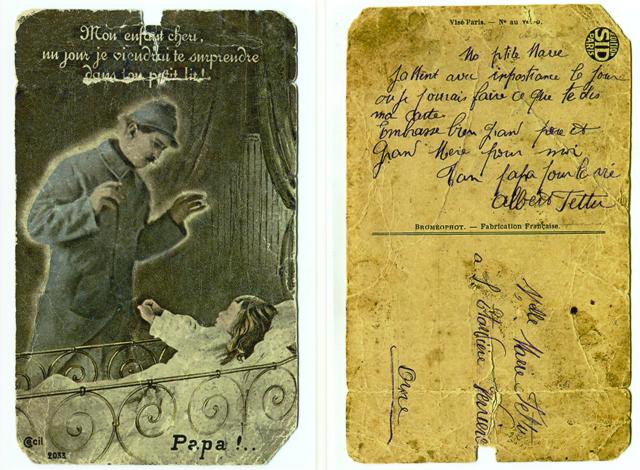 Mon enfant cheri,
un jour je viendrai te surprendre
dans ton petit lit!
Cecil
2033
Papa !..
Visé Paris. — Nº au verso.
EDITION
SID
PARIS
Ma ptite Marie
Jattint avec impostiance le jour
ou je pourais faire ce que te dis
ma carte
Embrasse bien gran père et
Gran Mere pour moi
Ton papa pour la vie
Albert Tettu
Broméophot. — Fabrication Française.
Melle Marie Tettu
a St
Orne